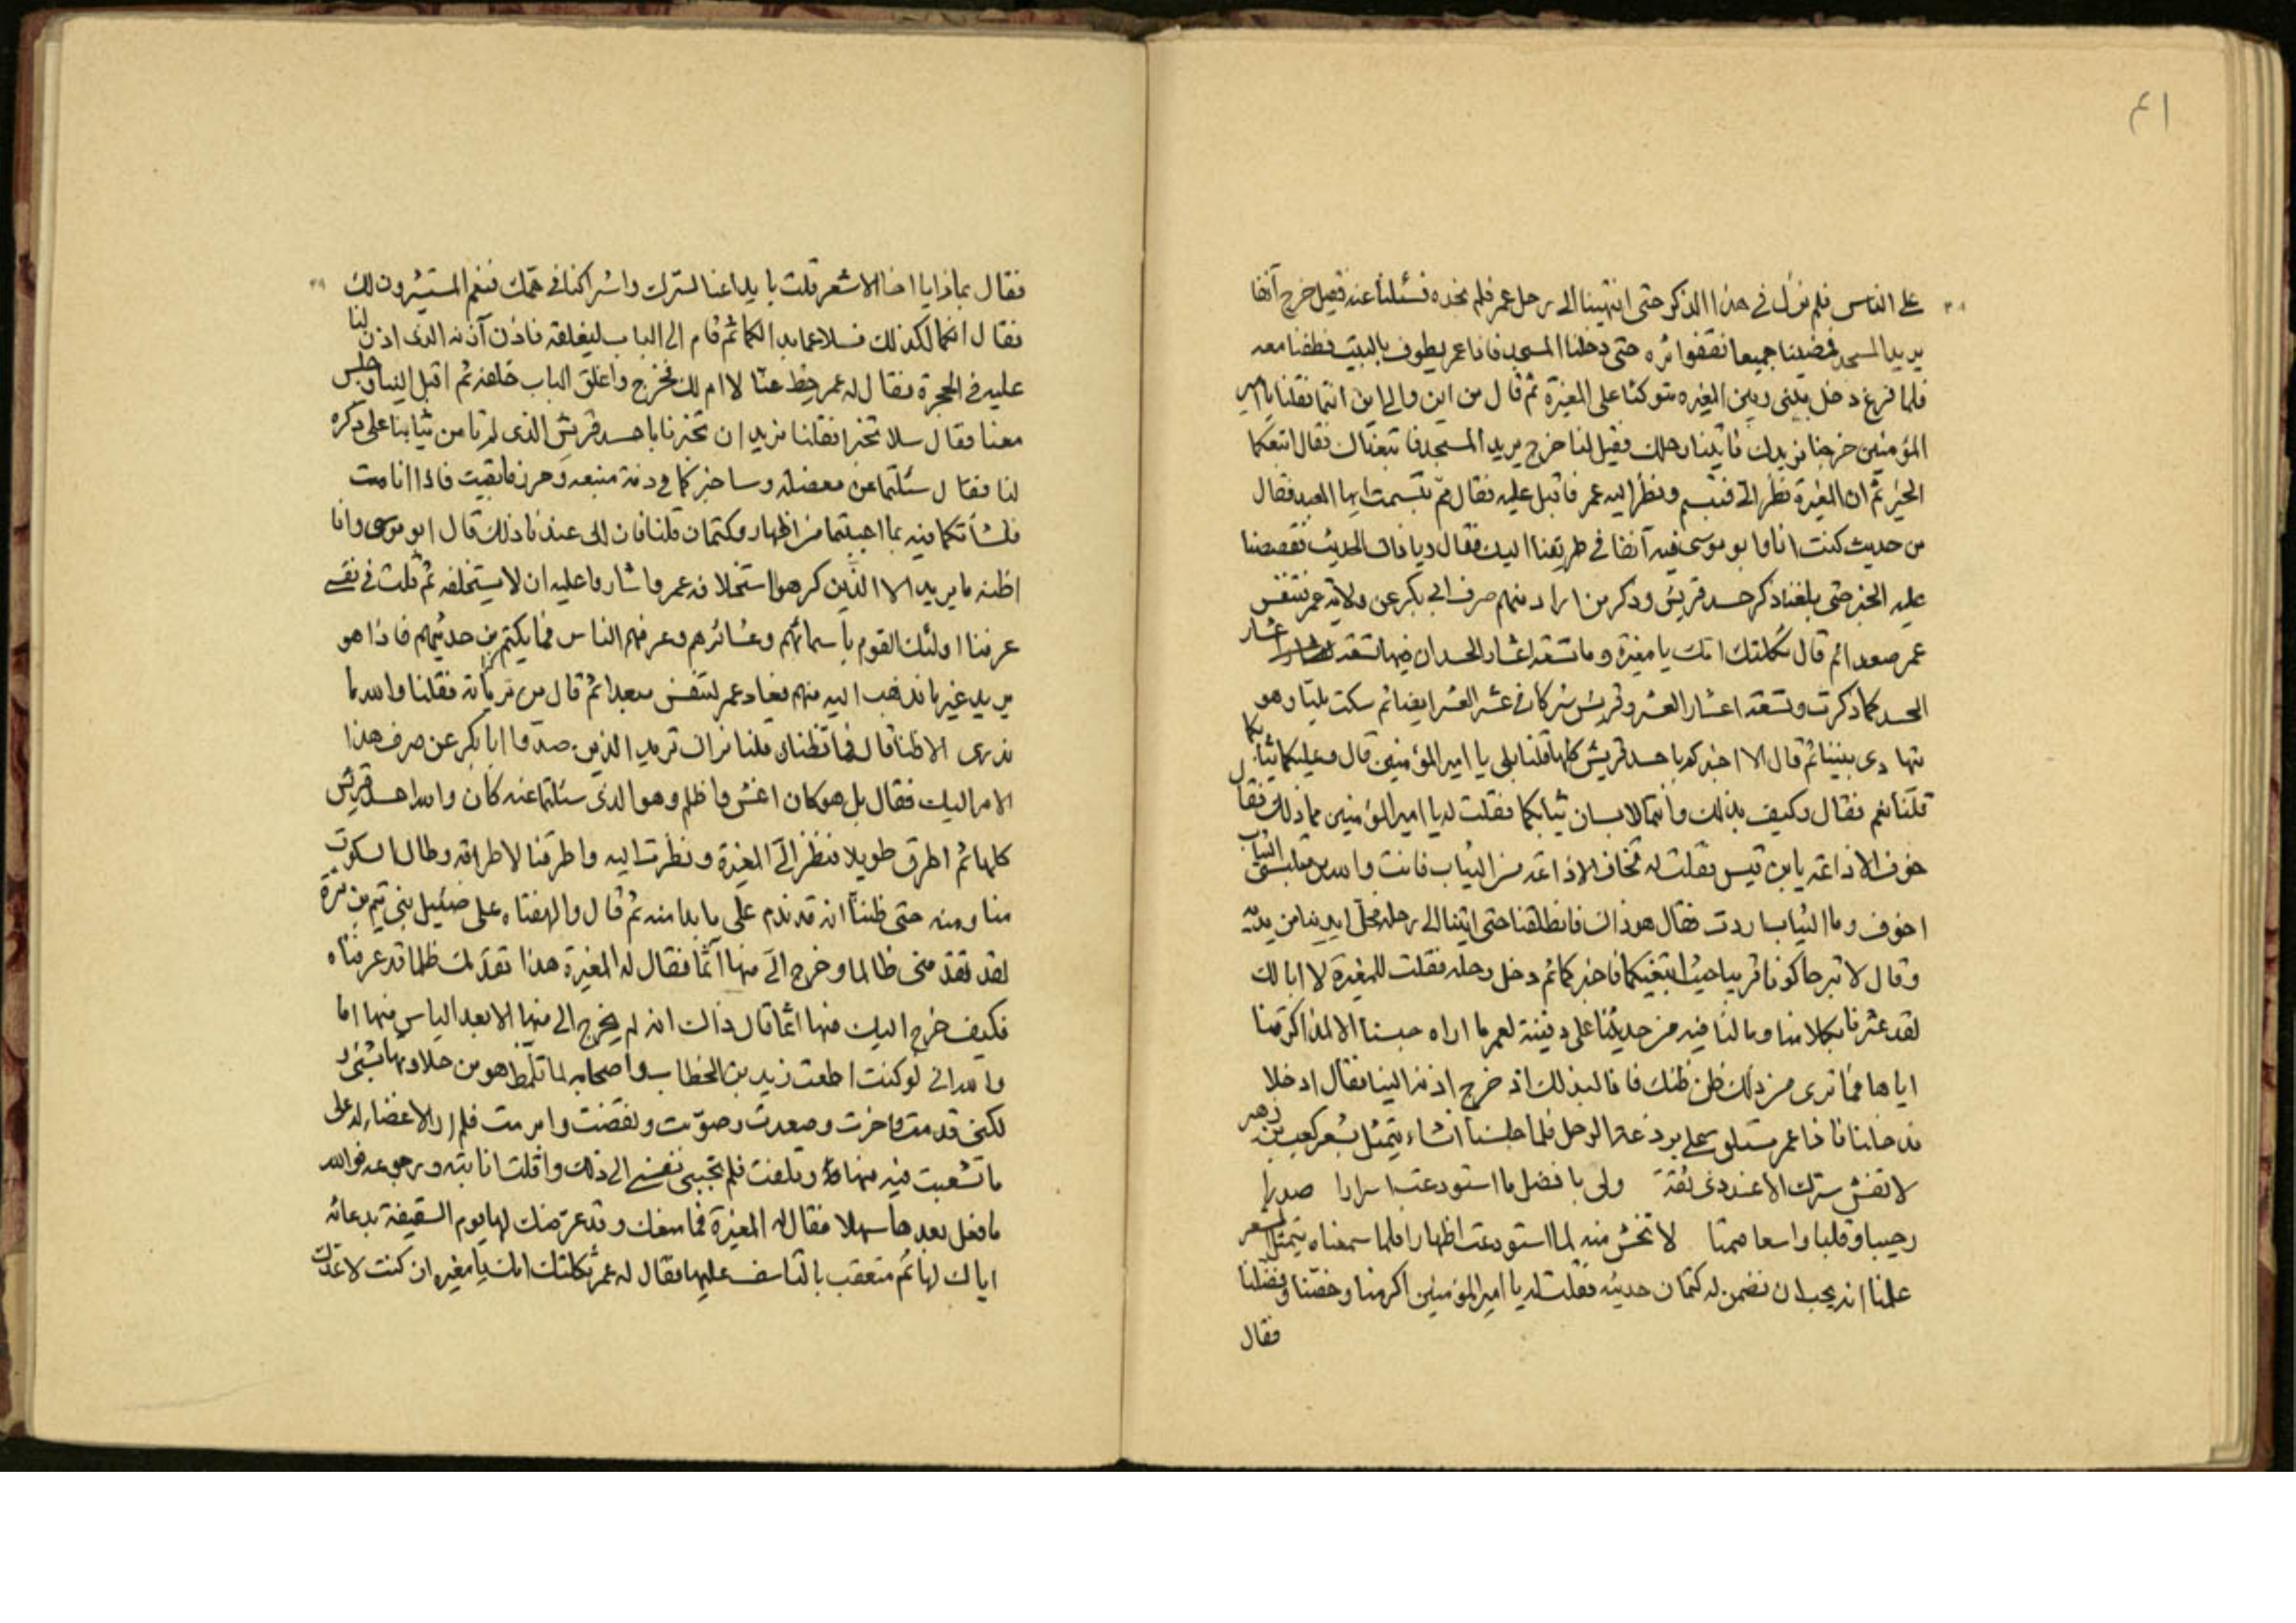 ٤١
على الناس فلم نزل في هذا الذكر حتى انتهينا الى رحل عمر فلم نجده فسئلنا عنه فقيل خرج آنفا
يريد المسجد فمضينا جميعا نقفوا ثره حتى دخلنا المسجد فاذا عمر يطوف بالبيت فطفنا معه
فلما فرغ دخل بيني وبين المغيره متوكئا على المغيرة ثم قال من اين والى اين انتما فقلنا يا امير
المؤمنين خرجنا نريدك فأتينا رحلك فقيل لنا خرج يريد المسجد فاتبعناك فقال اتبعكما
الخير ثم ان المغيرة نظر الىّ فتبسم ونظر اليه عمر فاقبل عليه فقال ممّ تبسمت ايها العبد فقال
من حديث كنت انا وابو موسى فيه آنفا في طريقنا اليك فقال وما ذاك الحديث فقصصنا
عليه الخبر حتى بلغنا ذكر حسد قريش وذكر من اراد منهم صرف ابي بكر عن ولاية عمر فتنفس
عمر صعدا ثم قال ثكلتك امك يا مغيرة وما تسعة اعشار الحسد ان فيها تسعة اعشار
الحسد كما ذكرت وتسعة اعشار العشر وقريش شركا في عشر العشر ايضا ثم سكت مليا وهو
يتهادى بيننا ثم قال الا اخبركم باحسد قريش كلها قلنا بلى يا امير المؤمنين قال وعليكما ثيابكما
قلنا نعم فقال وكيف بذلك وانتما لابسان ثيابكما فقلت له يا امير المؤمنين مما ذلك فقال
خوف الاذاعة يا بن قيس فقلت له تخاف الاذاعة من الثياب فانت والله من ملبسي الثياب
اخوف وما الثياب اردت فقال هو ذاك فانطلقنا حتى اتينا الى رحله فخلّى ايدينا من يديه
وقال لا تبرحا كونا قريبا حيث ابتغيكما فاخبركما ثم دخل رحله فقلت للمغيرة لا ابا لك
لقد عثرنا بكلامنا وما لنا فيه من حديثنا على دفينة لعمر ما اراه حبسنا الا لمذاكرتنا
اياها فما ترى من ذلك ظن ظنك فانا لبذلك اذ خرج اذنه الينا فقال ادخلا
فدخلنا فاذا عمر مستلق على برذعة الرحل فلما جلسنا انشاء يتمثل بشعر كعب بن زهير
لا تفش سرك الا عند ذي ثقة ولى بافضل ما استودعت اسرارا صدرا
رحيبا وقلبا واسعا صمتا لا تخش منه لما استودعت اظهارا فلما سمعناه يتمثل بشعر
علمنا انه يحب ان نضمن له كتمان حديثه فقلت له يا امير المؤمنين اكرمنا وخصّنا وفضّلنا
فقال
فقال بماذا يا اخا الاشعر قلت باذاعنا لسرك واشراكنا في همّك فنعم المستشيرون لك
فقال انكما لكذلك فسلا عما بدا لكما ثم قام الى الباب ليغلقه فاذن آذنه الذى اذن لنا
عليه في الحجرة فقال له عمر خطّ عنّا لا ام لك فخرج واغلق الباب خلفه ثم اقبل الينا وجلس
معنا فقال سلا تخبرا فقلنا نريد ان تخبرنا باحسد قريش الذى لم تأمن ثيابنا على ذكره
لنا فقال سئلتما عن معضلة وساخبركما في ذمة منيعه وحرز ما بقيت فاذا انا مت
فشأنكما فيه بما احببتما من اظهار وكتمان قلنا فان لك عندنا ذلك قال ابو موسى وانا
اظنه ما يريد الا الذين كرهوا استخلافه عمر واشاروا عليه ان لا يستخلفه ثم قلت في نفسي
عرفنا اولئك القوم باسمائهم وعشائرهم وعرفهم الناس فما يكتم من حديثهم فاذا هو
يريد غير ما نذهب اليه منهم فعاد عمر لتنفس صعدا ثم قال من تريانه فقلنا والله ما
ندرى الا ظنا قال فما تظنان قلنا نراك تريد الذين صدّوا ابا بكر عن صرف هذا
الامر اليك فقال بل هو كان اغش واظلم وهو الذى سئلتما عنه كان والله احسد قريش
كلها ثم اطرق طويلا فنظر الىّ المغيرة ونظرت اليه واطرقنا لاطراقه وطال السكوت
منا ومنه حتى ظننا انه قد ندم على ما بدا منه ثم قال والهفتاه على ضئيل بنى تيم بن مرّة
لقد تقدّمنى ظالما وخرج الىّ منها آثما فقال له المغيرة هذا تقدّمك ظلما قد عرفناه
فكيف خرج اليك منها اثما قال ذاك انه لم يخرج الى منها الا بعد الياس منها اما
والله انى لو كنت اطعت زيد بن الخطاب واصحابه لما تلمّظ هو من حلاوتها بشىء
لكنى قدمت واخرت وصعدت وصوّبت ونقضت وابرمت فلم ار الا غضاء له على
ما تشعبت فيه منها وتلهفت فلم تجبنى نفسى الى ذلك واقلت انابته ورجوعه فوالله
ما فعل بعدها سهلا فقال له المغيرة فما منعك وقد عرّضك لها يوم السقيفة بدعائه
اياك لها ثم متعقب بالتاسف عليها فقال له عمر ثكلتك امك يا مغيره ان كنت لاعدّك